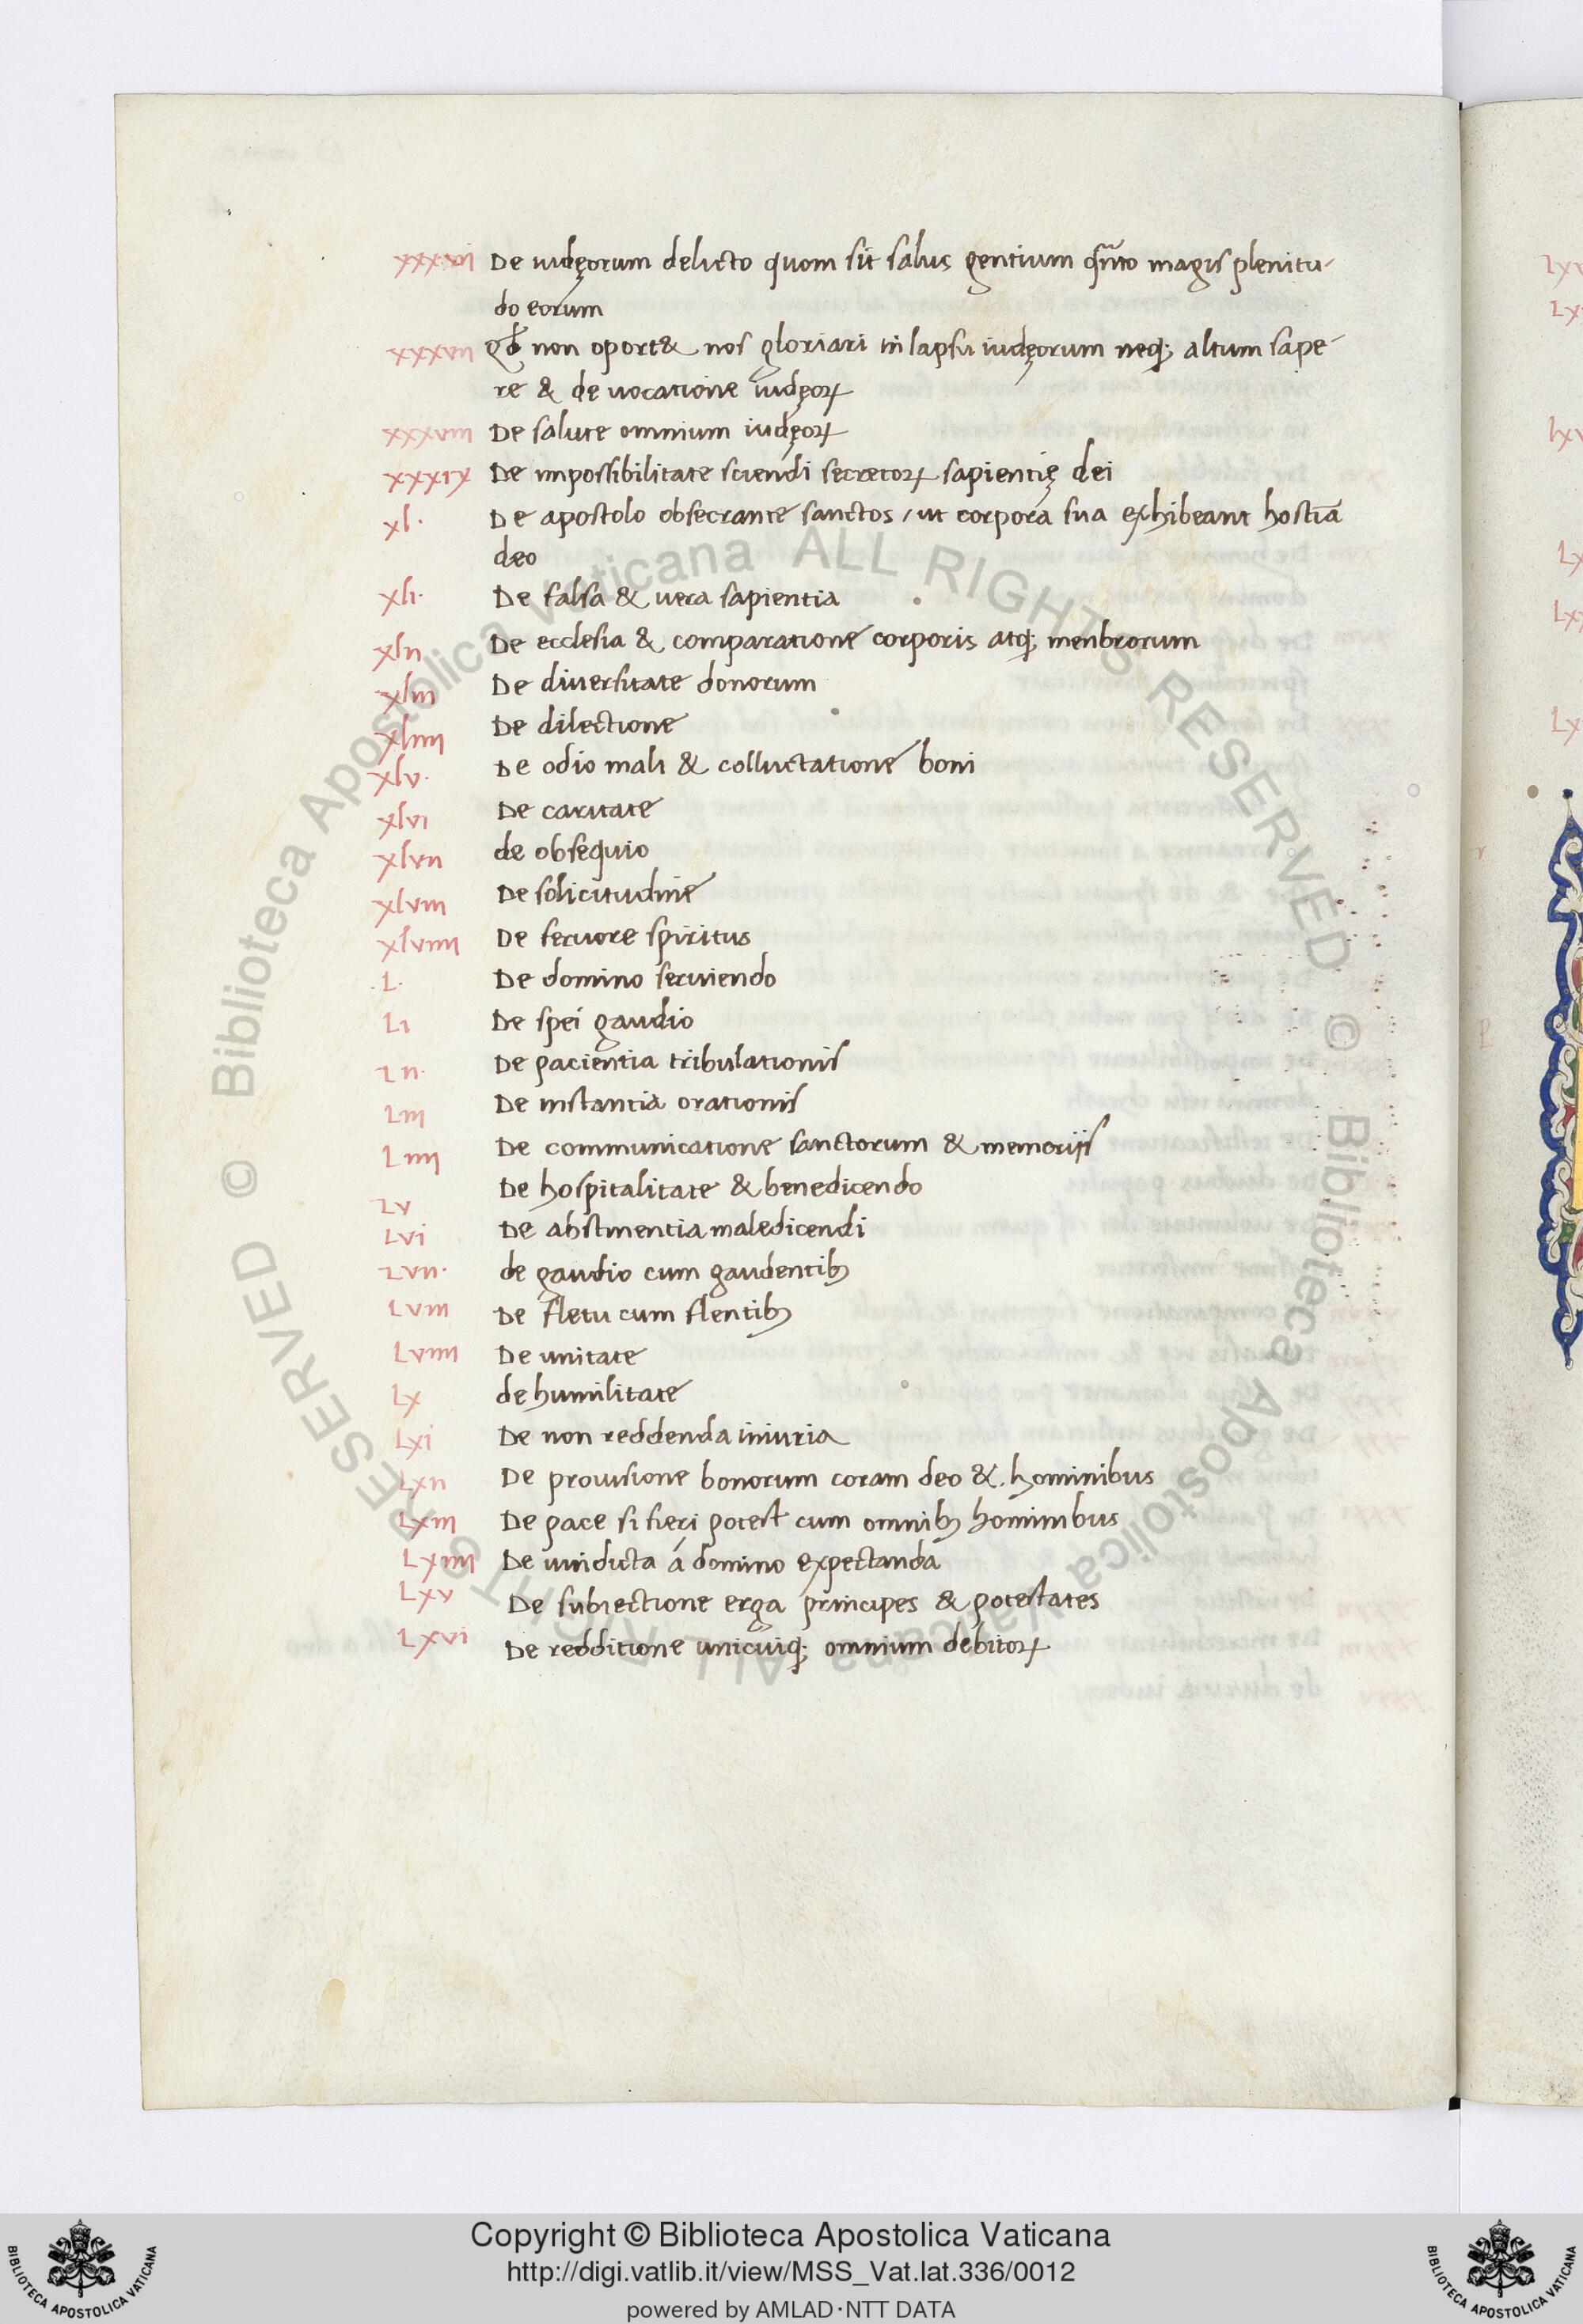 xxxvi De iudęorum delicto quom sit salus gentium qũto magis plenitu-
do eorum
xxxvii qđ non oport& nos gloriari in lapsu iudęorum neq; altum sape-
re & de uocatione iudęoꝝ
xxxviii De salute omnium iudęoꝝ
xxxix De impossibilitate sciendi secretoꝝ sapientię dei
xl. De apostolo obsecrante sanctos / ut corpora sua exhibeant hostiā
deo
xli. De falsa & uera sapientia
xlii De ecclesia & comparatione corporis atq; menbrorum
xliii De diuersitate donorum
xliiii De dilectione
xlv. De odio mali & colluctatione boni
xlvi De caritate
xlvii de obsequio
xlviii De solicitudine
xlviiii De feruore spiritus
.L. De domino seruiendo
Li De spei gaudio
Lii. De pacientia tribulationis
Liii De instantia orationis
Liiii De communicatione sanctorum & memoriis
Lv De hospitalitate & benedicendo
Lvi De abstinentia maledicendi
Lvii. de gaudio cum gaudentibꝫ
Lviii De fletu cum flentibꝫ
Lviiii De unitate
Lx de humilitate
Lxi De non reddenda iniuria
Lxii De prouisione bonorum coram deo &. hominibus
Lxiii De pace si fieri potest cum omnibꝫ hominibus
Lxiiii De uindicta á domino expectanda
Lxv De subiectione erga principes & potestates
Lxvi De redditione unicuiq; omnium debitoꝝ
© Biblioteca Apostolica Vaticana ALL RIGHTS RESERVED © Biblioteca Apostolica Vaticana ALL RIGHTS RESERVED
Copyright © Biblioteca Apostolica Vaticana
http://digi.vatlib.it/view/MSS_Vat.lat.336/0012
powered by AMLAD·NTT DATA
BIBLIOTECA APOSTOLICA VATICANA
BIBLIOTECA APOSTOLICA VATICANA